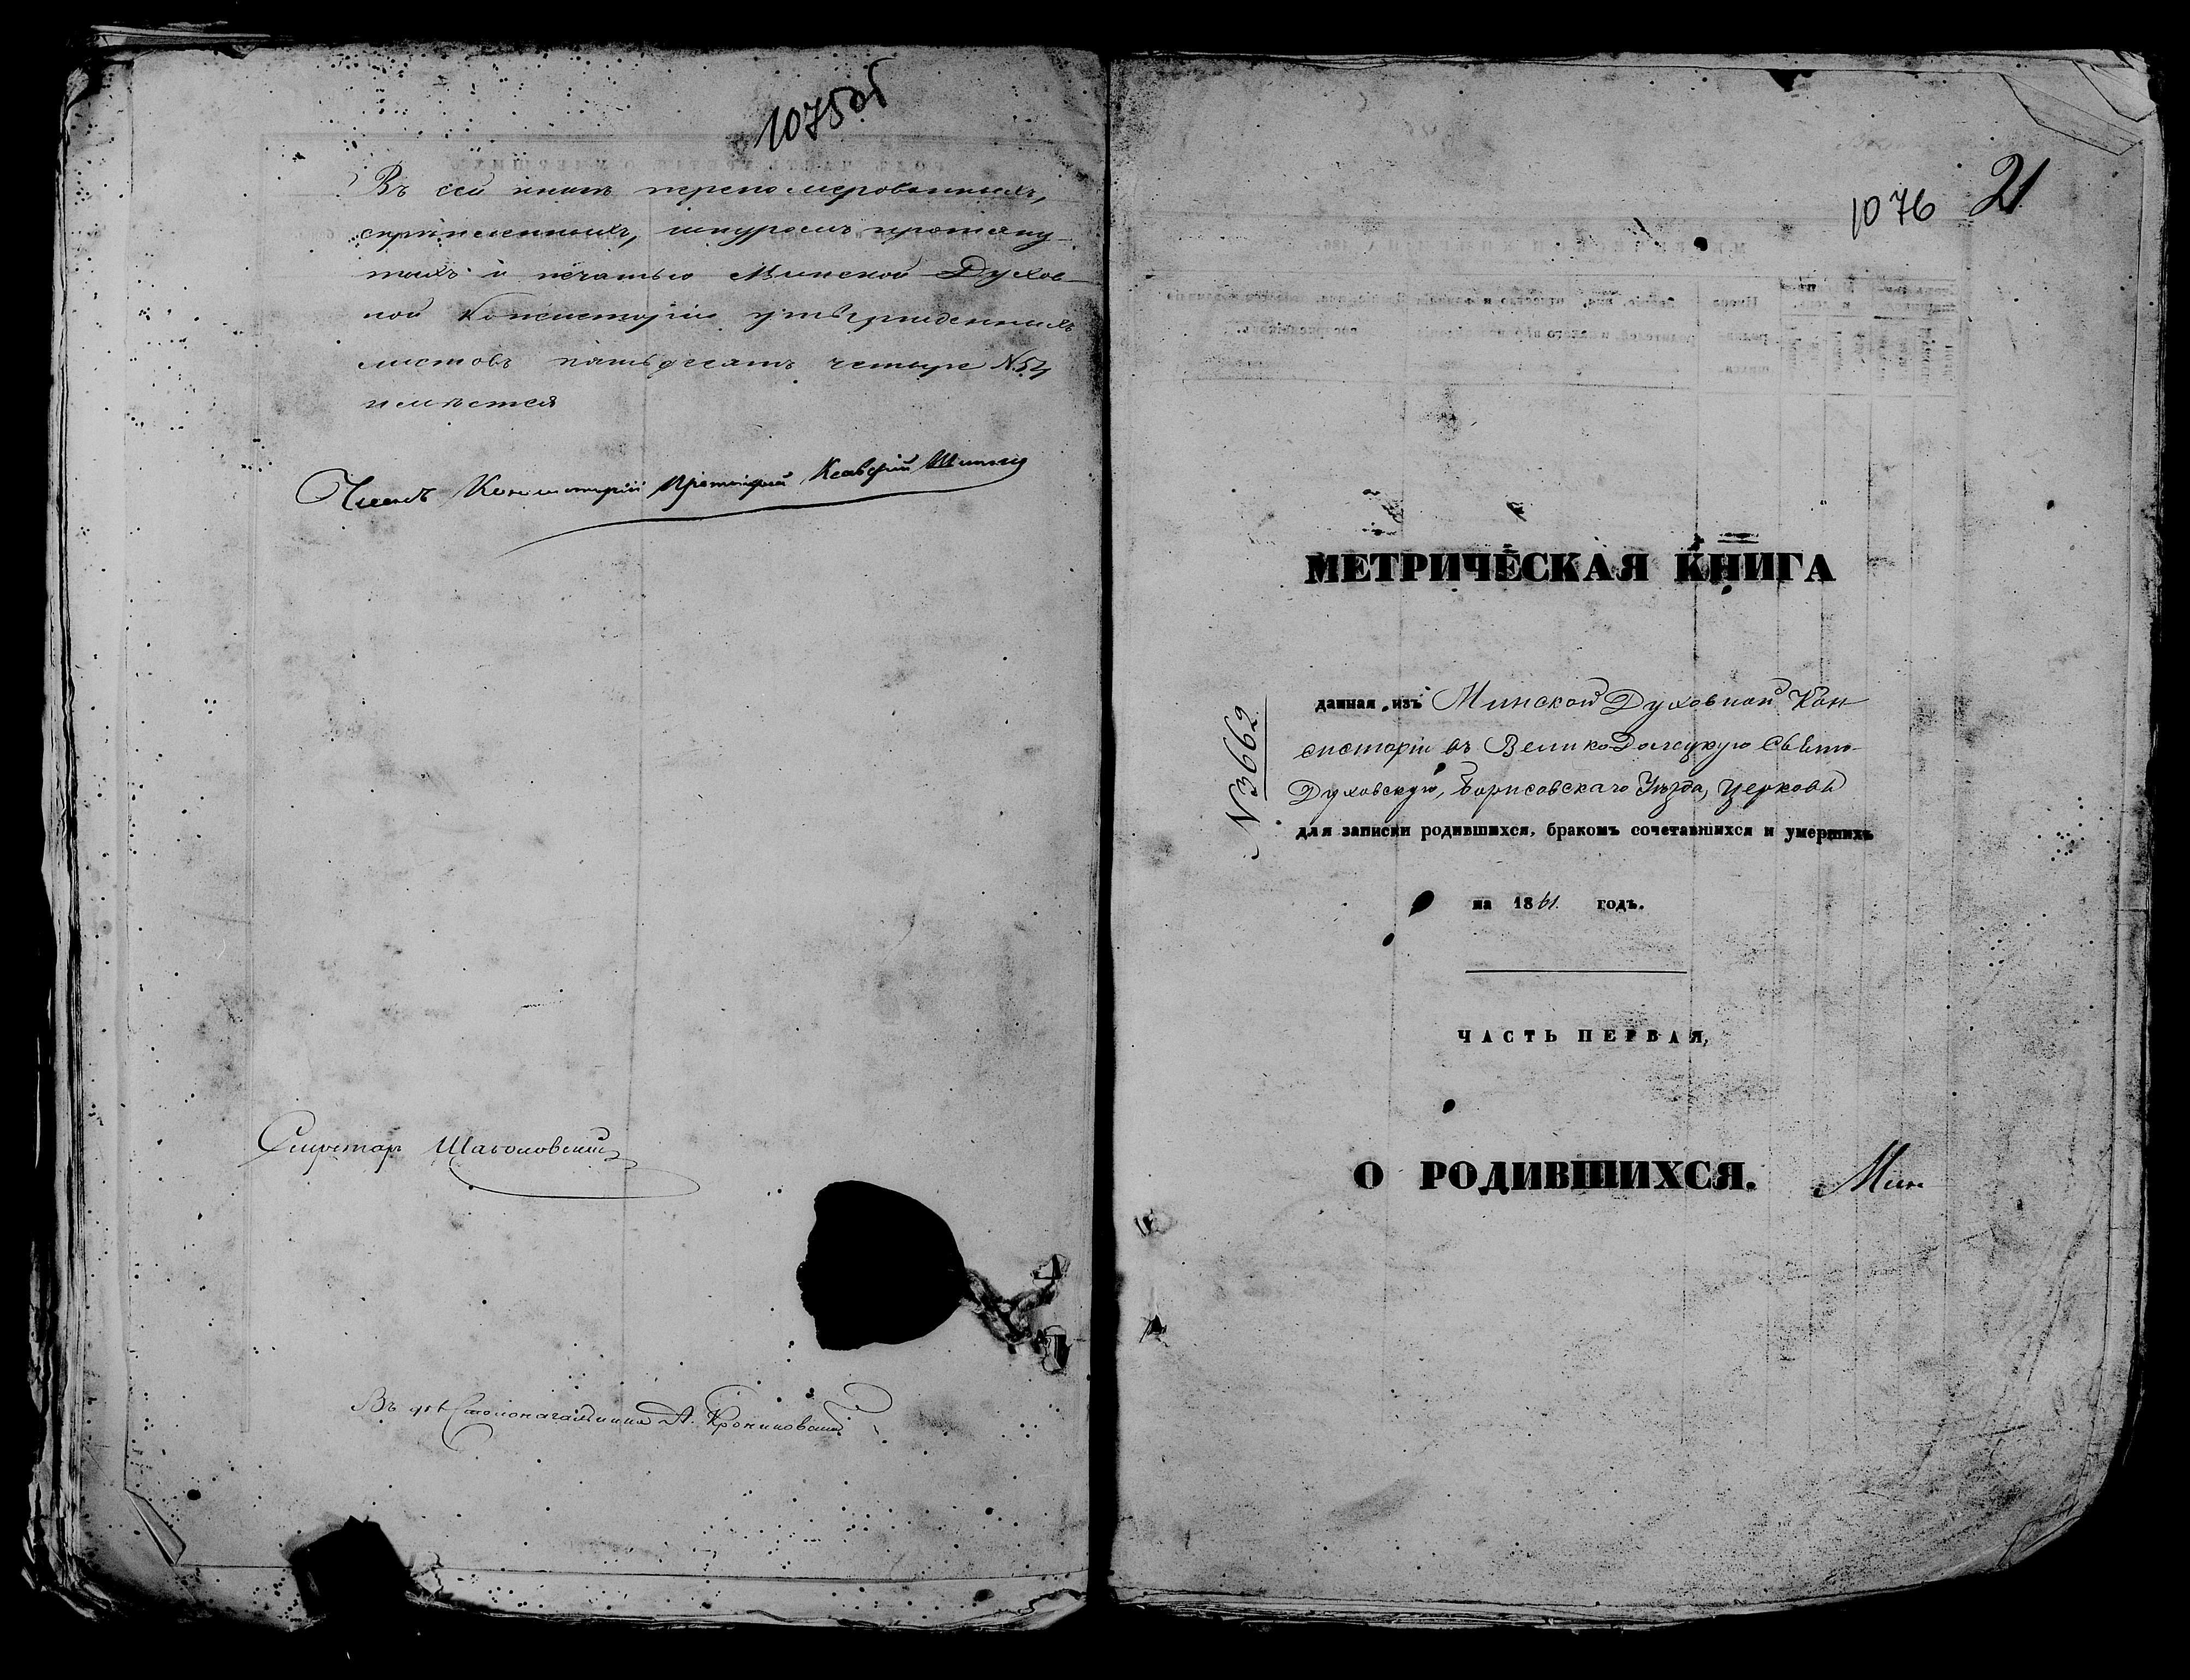 1075об
Въ сей книгѣ перенумерованныхъ,
скрѣпленныхъ, шнуромъ протяну-
тыхъ и печатью Минской Духов-
ной Консисторіи утвержденныхъ
листовъ пятьдесятъ четыре №54
имѣется
Членъ Консисторіи Протоіерей
Секретарь
Въ д. Столоначальника А.
1076 21
МЕТРИЧЕСКАЯ КНИГА
данная изъ Минской Духовной Кон
систоріи въ ВеликоДолецкую Свято-
Духовскую, Борисовскаго Уѣзда, церковь
для записки родившихся, бракомъ сочетавшихся и умершихъ
№3662
на 1861. годъ.
ЧАСТЬ ПЕРВАЯ,
О РОДИВШИХСЯ. Мин